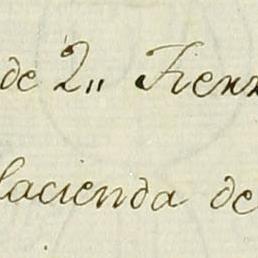 de 2,, Tien
lacienda de